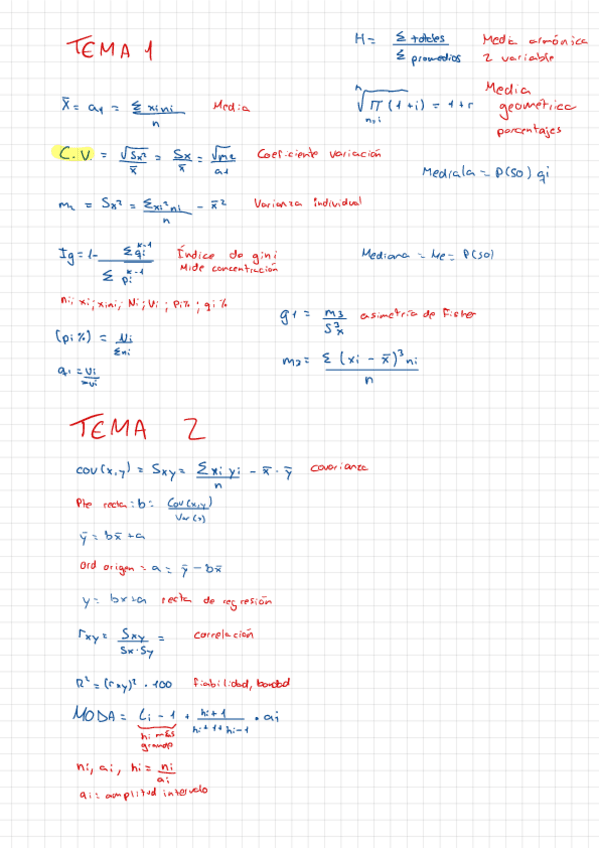 TEMA 1
H = Σ totales / Σ promedios Media armónica 2 variable
x̄ = a1 = Σ xi ni / n Media
ⁿ√π (1+i) = 1+r Media geométrica porcentajes
C.V. = √Sx² / x̄ = Sx / x̄ = √m2 / a1 Coeficiente variación
Mediala = P(50) qi
m2 = Sx² = Σxi² ni / n - x̄² Varianza individual
Ig = 1 - Σ qi^k-1 / Σ pi^k-1 Índice de gini
Mide concentración
Mediana = Me = P(50)
ni; xi; xini; Ni; Vi; Pi%; qi%
g1 = m3 / S³x asimetría de Fisher
(pi%) = Ni / Σni
m3 = Σ (xi - x̄)³ ni / n
TEMA 2
cov(x,y) = Sxy = Σxi yi / n - x̄ · ȳ covarianza
Pte recta: b = Cov(x,y) / Var(x)
ȳ = bx̄ + a
Ord origen = a = ȳ - bx̄
y = bx + a recta de regresión
rxy = Sxy / Sx·Sy = correlación
R² = (rxy)² · 100 fiabilidad, bondad
MODA = Li - 1 + hi+1 / hi+1+hi-1 · ai
hi más grande
ni, ai, hi = ni / ai
ai = amplitud intervalo